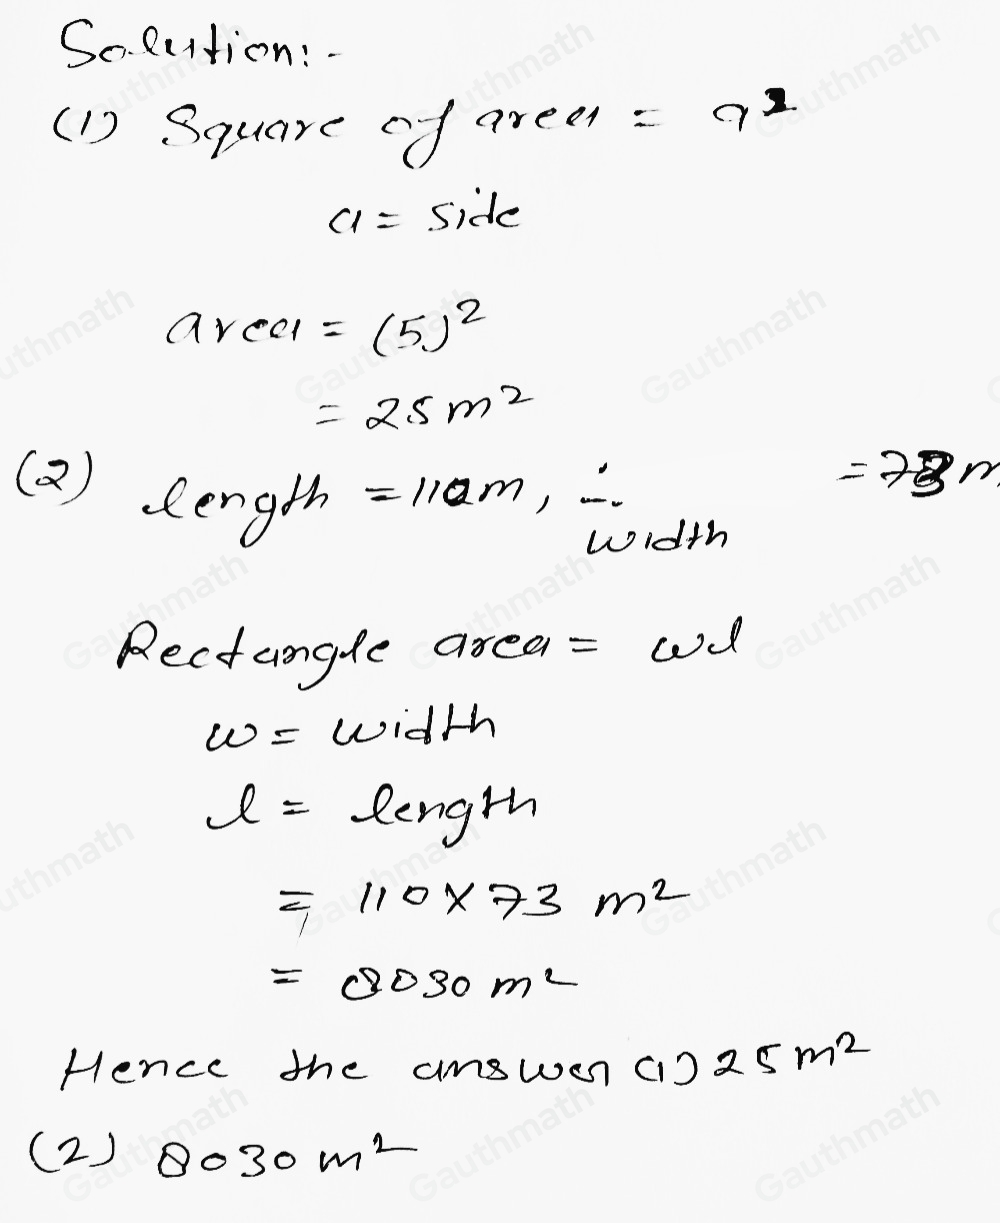 Solution:-
(1) Square of area = a²
a = side
area = (5)²
= 25 m²
(2) length = 110m, ∴ width = 73 m
Rectangle area = wl
w = width
l = length
= 110 × 73 m²
= 8030 m²
Hence the answer (1) 25 m²
(2) 8030 m²
Gauthmath